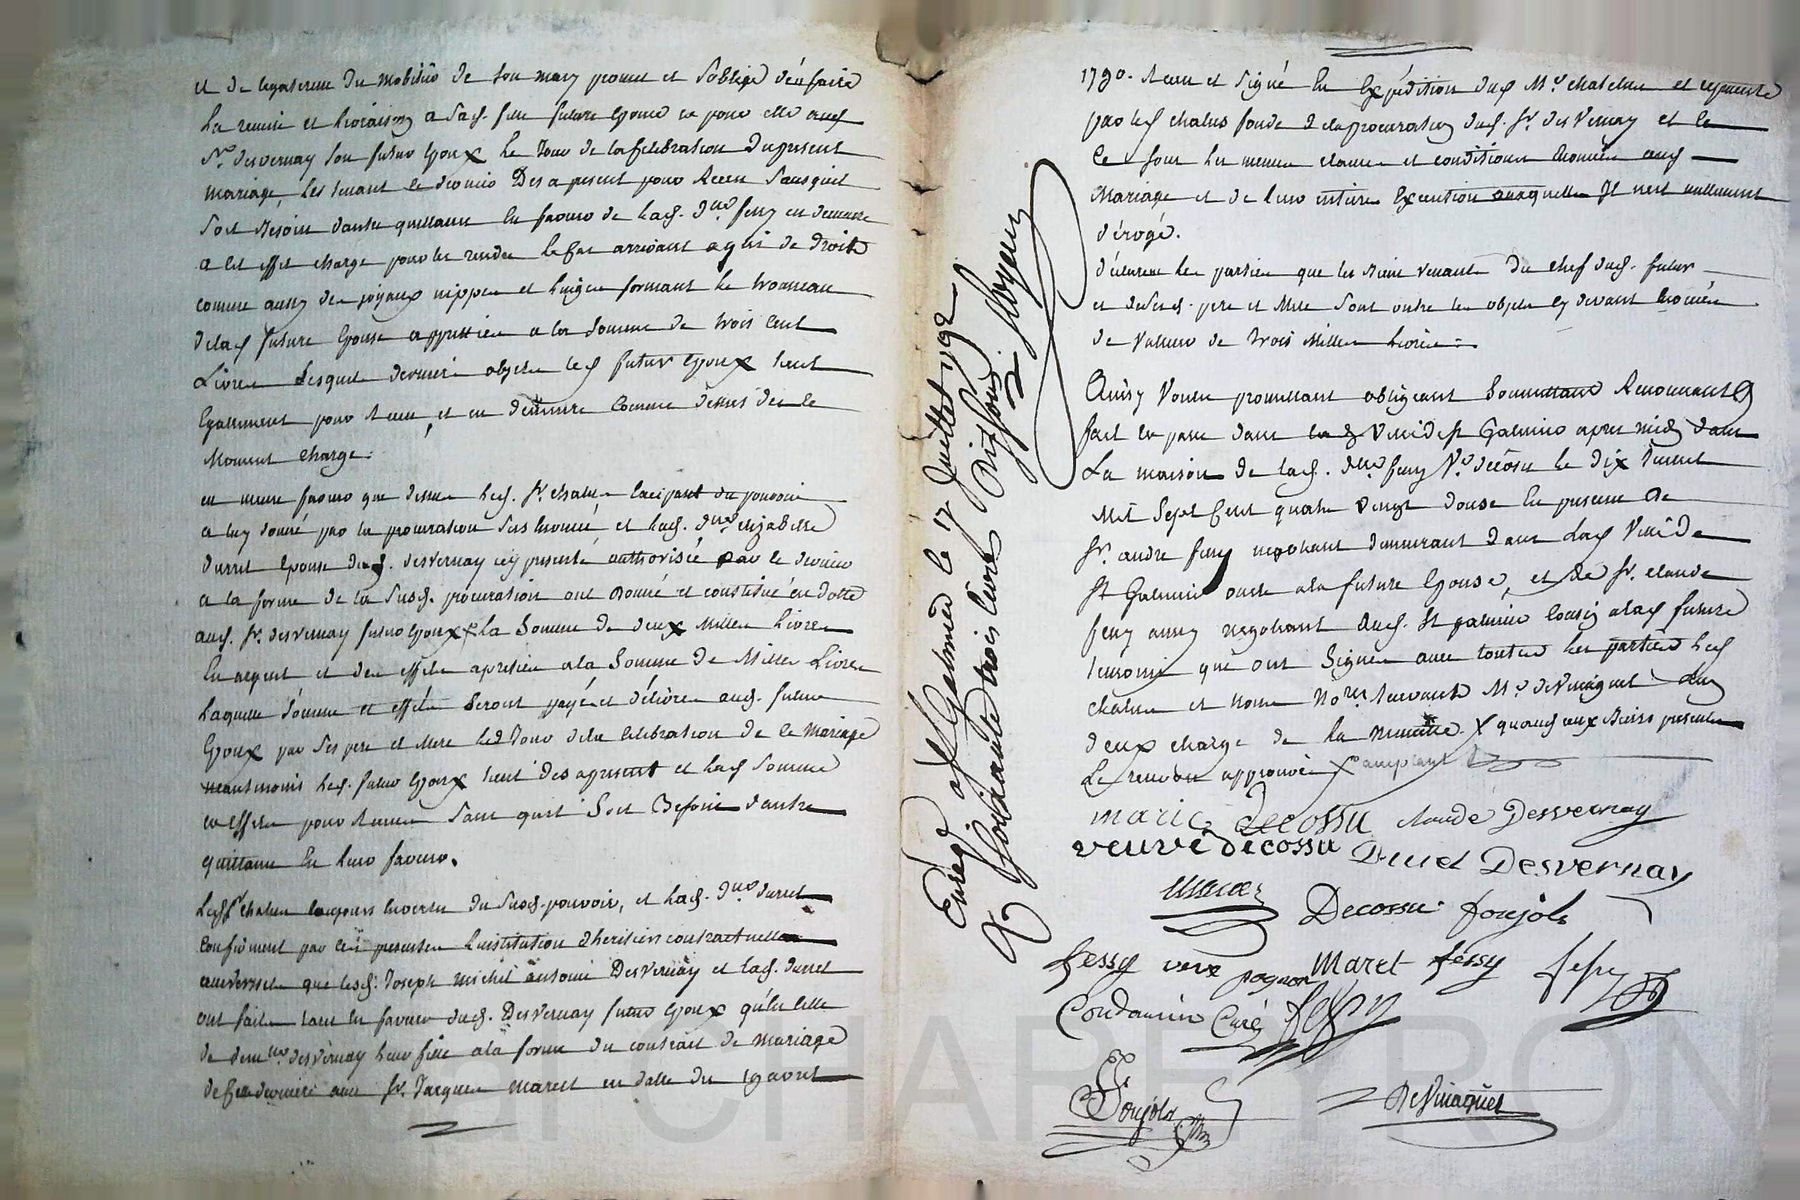 et de legataire du mobilier de son mary promet et s'oblige d'en faire
la remise et livraison a sad. fille future epouse et pour elle aud.
Sr. desvernay son futur epoux le jour de la celebration du present
mariage, les tenant ce dernier Des a present pour Receu sans quil
soit Besoin d'autre quittance En faveur de lad. dme fessy en demeure
a cet effet chargé pour les rendre le cas arrivant a qui de droit
comme aussy des joyaux nippes et linges formant le trousseau
de lad. future Epouse appreties a la somme de trois cent
Livres Desquels derniers objets les d. futur epoux tient
Egalement pour Receu, et en demeure comme dessus des ce
moment chargé.
en meme faveur que dessus led. Sr. chatelus en cipant du pouvoir
a luy donné par la procuration sus enoncée et lad. dme elizabeth
durret epouse dud. desvernay icy presente authorisée par ce dernier
a la forme de la susd. procuration ont donné et constitué en dotte
aud. Sr. desvernay futur epoux la somme de deux Milles Livres
En argent et des effets apreties a la somme de Milles Livres
laquelle somme et effets seront payé et delivrés aud. futur
Epoux par ses pere et Mere led. Jour de la celebration de ce mariage
neantmoins led. futur epoux tient des apresent et lad. somme
et effets pour Receu sans quil soit Besoin d'autre
quittance En leur faveur.
Led. Sr. chatelus toujours En vertu du susd. pouvoir, et lad. dme durret
confirment par ces presentes l'institution d'heritiers contractuelle
universelle que lesd. Joseph michel antoine Desvernay et lad. durret
ont faite tant En faveur dud. Desvernay futur epoux qu'En celle
de demlle desvernay leur fille a la forme du contrait de mariage
de cette derniere avec Sr. Jacques maret en datte du 19 avril
Enregé. a St Galmier le 17 Juillet 1792
R Soixante trois livres Dix Sous
1790. Receu et signé En Expedition dud. Me. chatelus et representé
par led. chatelus fondé de la procuration dud. Sr. desvernay et ce
ce sous les memes clauses et conditions Enoncées aud.
Mariage et de leur entiere Execution auxquelles Il n'est nullement
derogé.
declarent les parties que les Biens venants du chef dud. futur
et de sesd. pere et Mere sont outre les objets cy devant Enoncés
de Valleur de trois Milles Livres.
Ainsy Voulu promettant obligeant Soumettant Renonceant
fait et passé dans la Ville de St Galmier apres midy dans
La maison de lad. dme fessy Ve. decossu le dix Juillet
Mil Sept Cent quatre vingt douze En presence de
Sr. andre fessy negotiant demeurant dans lad. Ville de
St Galmier oncle a la future Epouse, et de Sr. claude
fessy aussy negotiant dud. St galmier cousin a lad. future
temoins que ont Signé avec toutes les parties led.
chatelus et nous Nores. Recevants Me. deVinaquet
d'eux chargé de la Minutte X quand aux Biens presents
Le renvoi approuvé X
marie decossu claude Desvernay
veuve decossu Duret Desvernay
Maret
Decossu poujols
fessy veve pognon Maret féssy fessy
Condamin Curé fessy
Poujols
DeVinaquet